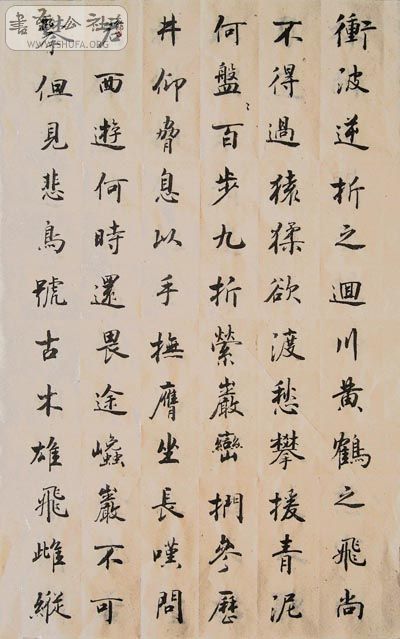 衝波逆折之迴川黃鶴之飛尚
不得過猿猱欲渡愁攀援青泥
何盤〻百步九折縈巖巒捫參歷
井仰脅息以手撫膺坐長嘆問
君西遊何時還畏途巉巖不可
攀但見悲鳥號古木雄飛雌縱
WWW.SHUFA.ORG